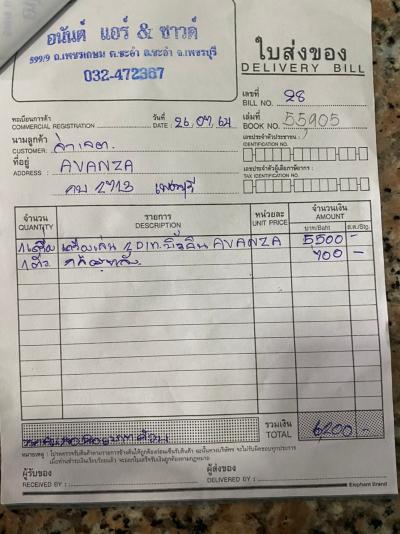 อนันต์ แอร์ & ซาวด์
599/9 ถ.เพชรเกษม ต.ชะอำ อ.ชะอำ จ.เพชรบุรี
032-472367
ใบส่งของ
DELIVERY BILL
เลขที่
BILL NO. 28
ทะเบียนการค้า
COMMERCIAL REGISTRATION
วันที่
DATE : 26,07,64
เล่มที่
BOOK NO. 55905
นามลูกค้า
CUSTOMER:
เลขประจำตัวประชาชน
IDENTIFICATION NO.
ที่อยู่
ADDRESS : AVANZA
2713 เพชรบุรี
เลขประจำตัวผู้เสียภาษีอากร
TAX IDENTIFICATION NO.
จำนวน
QUANTITY
รายการ
DESCRIPTION
หน่วยละ
UNIT PRICE
จำนวนเงิน
AMOUNT
บาท/Baht
ส.ต./Stg.
1 เครื่อง เครื่องเล่น 2DIN AVANZA 5500 -
1 ตัว 700 -
รวมเงิน
TOTAL 6200 -
หมายเหตุ : โปรดตรวจรับสินค้าตามรายการข้างต้นให้ถูกต้องก่อนเซ็นรับสินค้า
ผู้รับของ
RECEIVED BY :
ผู้ส่งของ
DELIVERED BY :
Elephant Brand